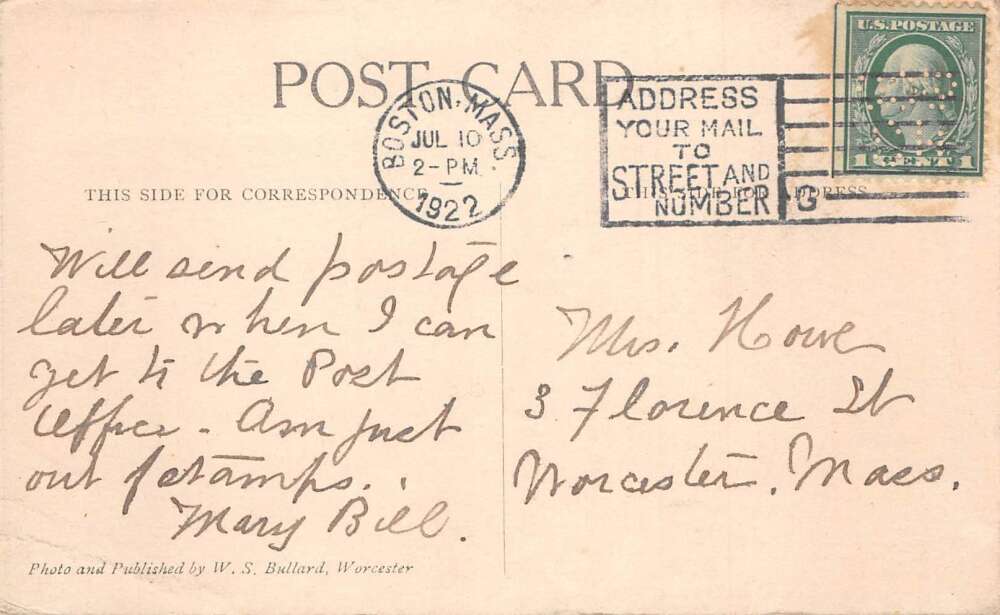 POST CARD
U.S. POSTAGE
1 CENT 1
BOSTON, MASS.
JUL 10
2-PM
1922
ADDRESS
YOUR MAIL
TO
STREET AND
NUMBER
G
THIS SIDE FOR CORRESPONDENCE
THIS SIDE FOR ADDRESS
Will send postage
later when I can
get to the Post
Office - Am just
out of stamps.
Mary Bill.
Mrs. Howe
3 Florence St
Worcester, Mass.
Photo and Published by W. S. Bullard, Worcester